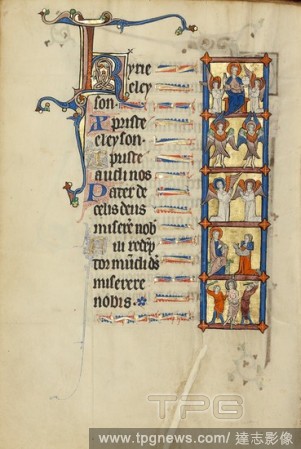 Kyrie
eley
son.
Xpriste
eleyson.
Xpriste
audi nos
Pater de
celis deus
miserere nob
Fili redẽp
tor mũdi ds
miserere
nobis.
TPG
www.tpgnews.com/ 達志影像